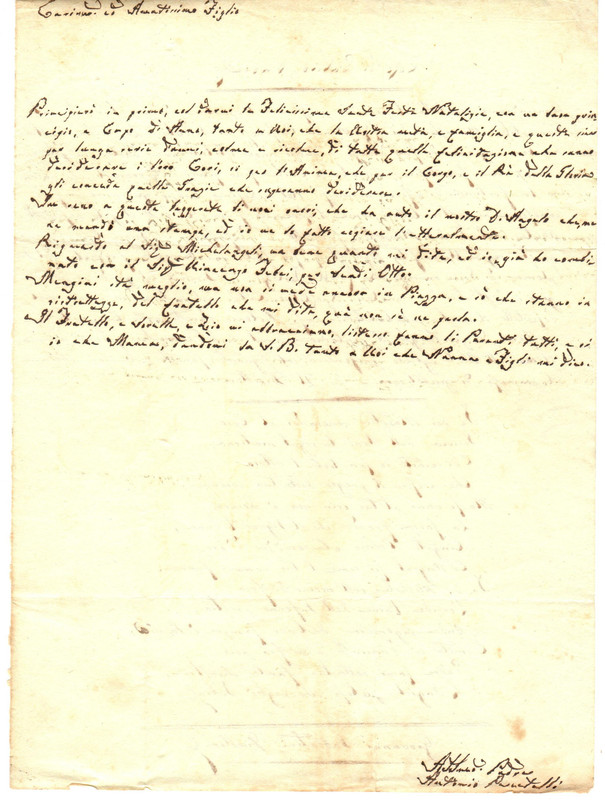 Carissimo ed Amatissimo Figlio
Principierò in primo, col darvi le Felicissime Sante Feste Natalizie, con un buon prin
cipio, e Capo di Anno, tanto a Voi, che la Vostra metà, e famiglia, e queste siano
per lunga serie d'anni, colme e ricolme, di tutte quelle felicitazioni che sanno
desiderare i loro Cori, si per l'Anima, che per il Corpo, e il Rè della Gloria
gli conceda quelle Grazie che sapranno desiderare.
In seno a questa leggerete li novi casi, che ha auto il nostro D. Angelo che me
ne mandò una stampa, ed io ve la fatto copiare letteralmente.
Riguardo al Sig. Michelangeli, va bene quanto mi dite, ed io già ho combi
nato con il Sig. Vincenzo Febei, per Scudi Otto.
Mengini stà meglio, ma non si vede ancora in Piazza, e ciò che stanno in
ristrettezze, del fratello che mi dite, quà non sè ne parla.
Il Fratello, e Sorelle, e Zio vi abbracciano, l'istesso fanno li Parenti tutti, e si
io che Mamma, dandovi la S. B. tanto a Voi che Nanna e Figli mi dico.
Affmo. Padre
Antonio